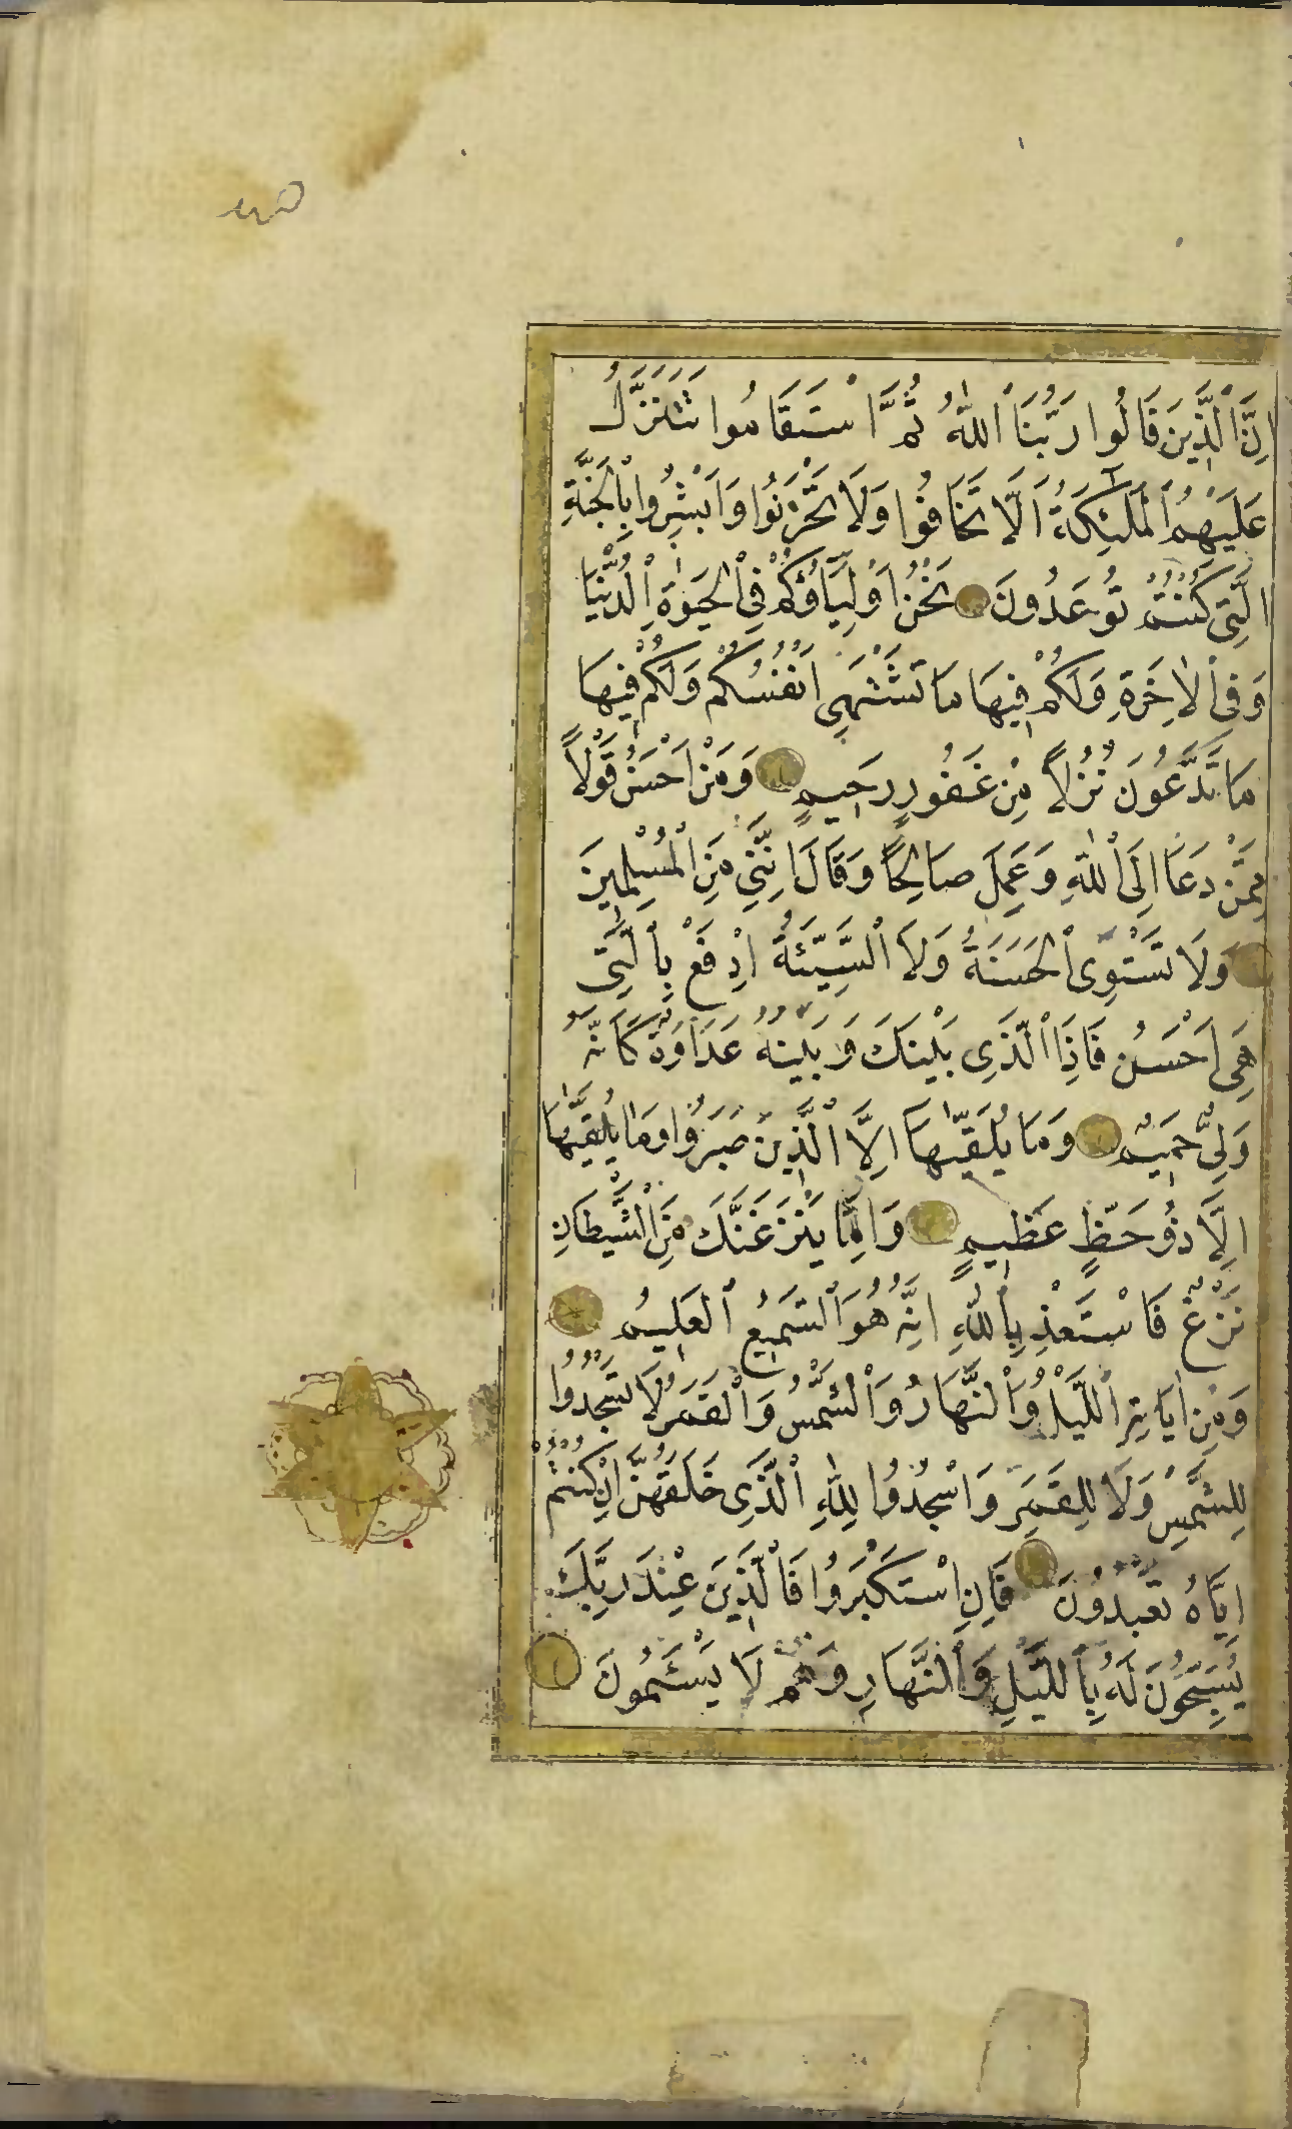 اِنَّ الَّذِينَ قَالُوا رَبُّنَا اللّٰهُ ثُمَّ اسْتَقَامُوا تَتَنَزَّلُ
عَلَيْهِمُ الْمَلٰٓئِكَةُ اَلَّا تَخَافُوا وَلَا تَحْزَنُوا وَاَبْشِرُوا بِالْجَنَّةِ
الَّتِى كُنْتُمْ تُوعَدُونَ نَحْنُ اَوْلِيَآؤُكُمْ فِى الْحَيٰوةِ الدُّنْيَا
وَفِى الْاٰخِرَةِ وَلَكُمْ فِيهَا مَا تَشْتَهِى اَنْفُسُكُمْ وَلَكُمْ فِيهَا
مَا تَدَّعُونَ نُزُلاً مِنْ غَفُورٍ رَحِيمٍ وَمَنْ اَحْسَنُ قَوْلاً
مِمَّنْ دَعَا اِلَى اللّٰهِ وَعَمِلَ صَالِحًا وَقَالَ اِنَّنِى مِنَ الْمُسْلِمِينَ
وَلَا تَسْتَوِى الْحَسَنَةُ وَلَا السَّيِّئَةُ اِدْفَعْ بِالَّتِى
هِىَ اَحْسَنُ فَاِذَا الَّذِى بَيْنَكَ وَبَيْنَهُ عَدَاوَةٌ كَاَنَّهُ
وَلِىٌّ حَمِيمٌ وَمَا يُلَقّٰيهَا اِلَّا الَّذِينَ صَبَرُوا وَمَا يُلَقّٰيهَا
اِلَّا ذُو حَظٍّ عَظِيمٍ وَاِمَّا يَنْزَغَنَّكَ مِنَ الشَّيْطَانِ
نَزْغٌ فَاسْتَعِذْ بِاللّٰهِ اِنَّهُ هُوَ السَّمِيعُ الْعَلِيمُ
وَمِنْ اٰيَاتِهِ الَّيْلُ وَالنَّهَارُ وَالشَّمْسُ وَالْقَمَرُ لَا تَسْجُدُوا
لِلشَّمْسِ وَلَا لِلْقَمَرِ وَاسْجُدُوا لِلّٰهِ الَّذِى خَلَقَهُنَّ اِنْ كُنْتُمْ
اِيَّاهُ تَعْبُدُونَ فَاِنِ اسْتَكْبَرُوا فَالَّذِينَ عِنْدَ رَبِّكَ
يُسَبِّحُونَ لَهُ بِالَّيْلِ وَالنَّهَارِ وَهُمْ لَا يَسْئَمُونَ